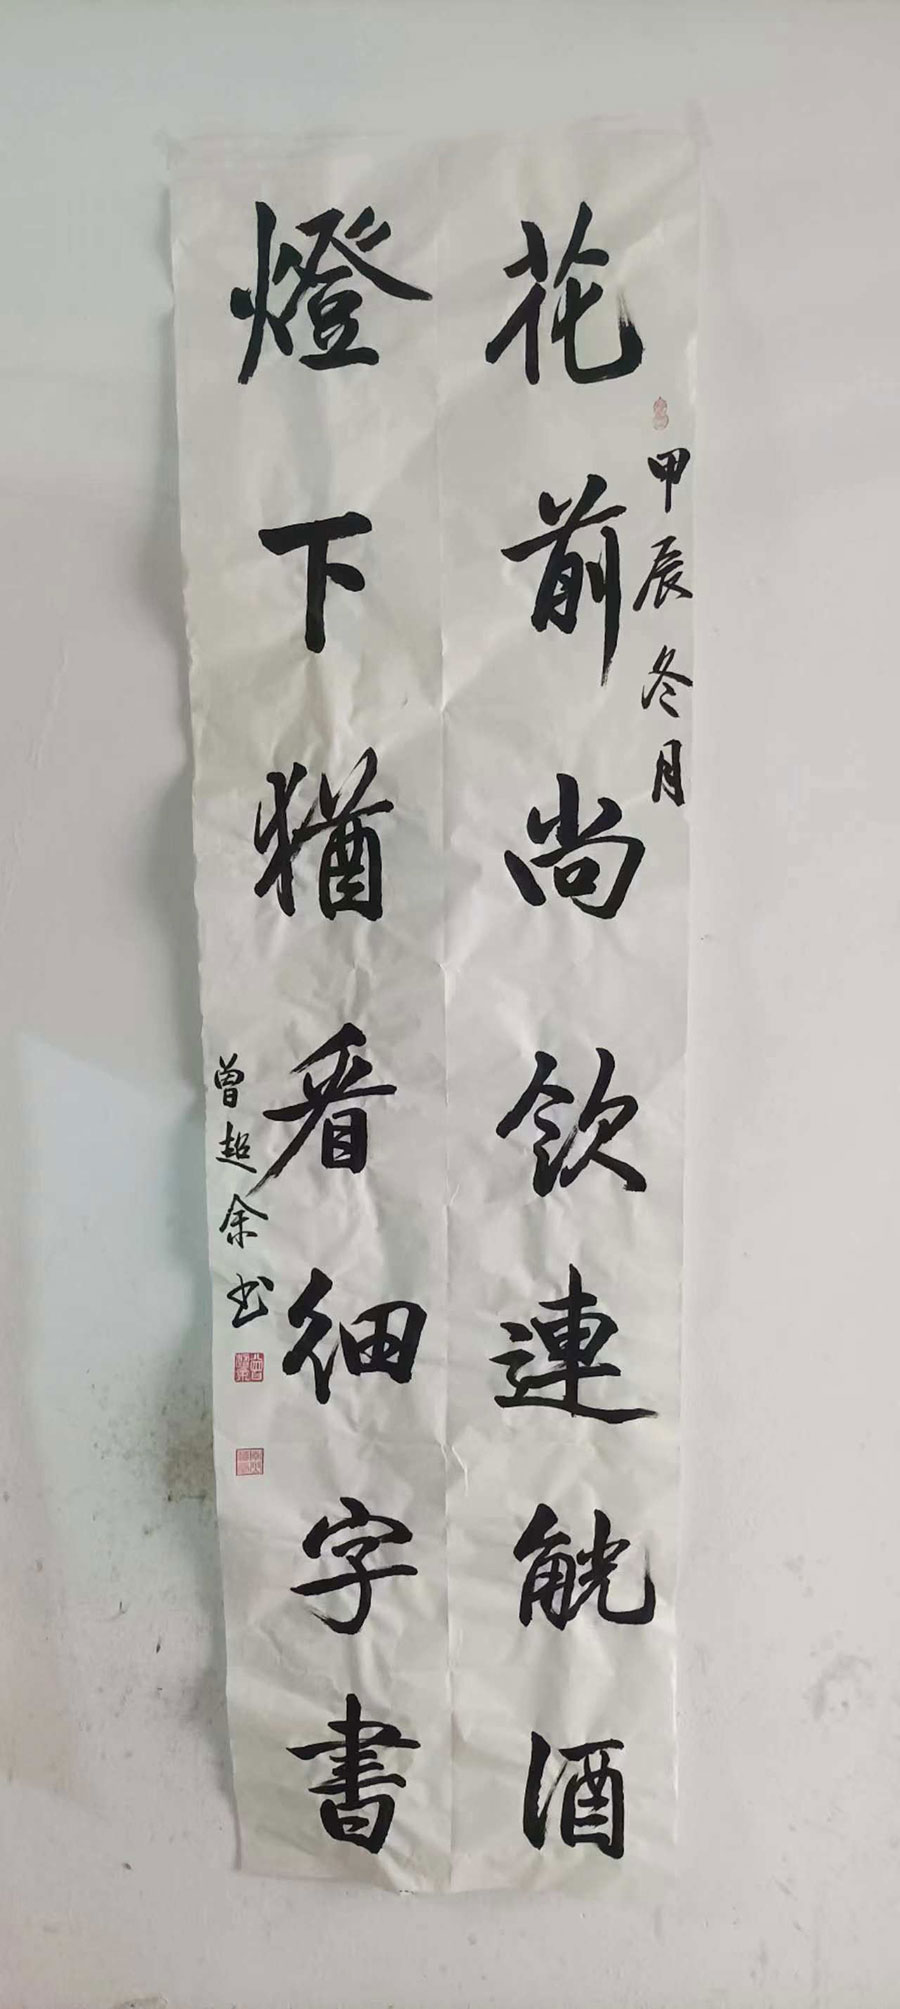 花前尚飲連觥酒
甲辰冬月
燈下猶看細字書
曾超余书